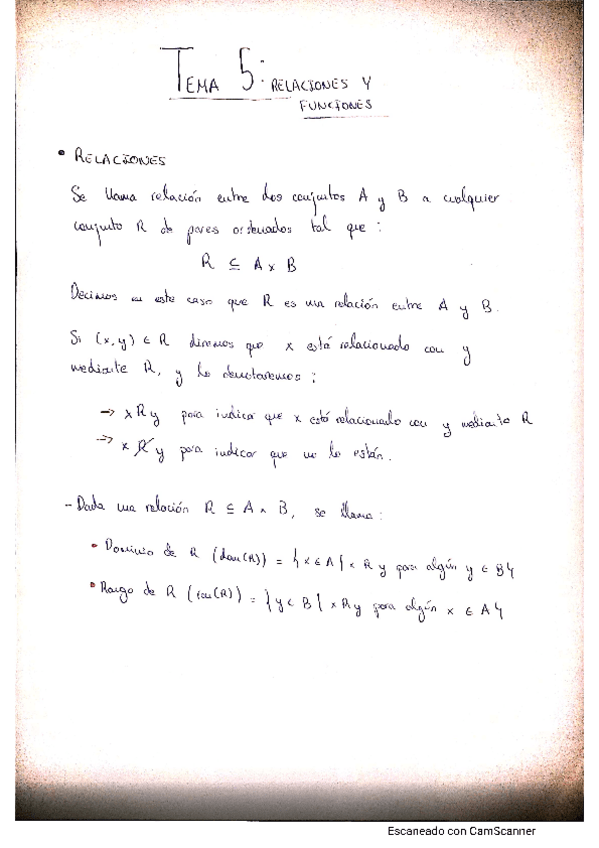 TEMA 5: RELACIONES Y
FUNCIONES
• RELACIONES
Se llama relación entre dos conjuntos A y B a cualquier
conjunto R de pares ordenados tal que:
R ⊆ A x B
Decimos en este caso que R es una relación entre A y B.
Si (x,y) ∈ R diremos que x está relacionado con y
mediante R, y lo denotaremos:
→ x R y para indicar que x está relacionado con y mediante R
→ x R̸ y para indicar que no lo están.
- Dada una relación R ⊆ A x B, se llama:
• Dominio de R (dom(R)) = { x ∈ A | x R y para algún y ∈ B }
• Rango de R (ran(R)) = { y ∈ B | x R y para algún x ∈ A }
Escaneado con CamScanner